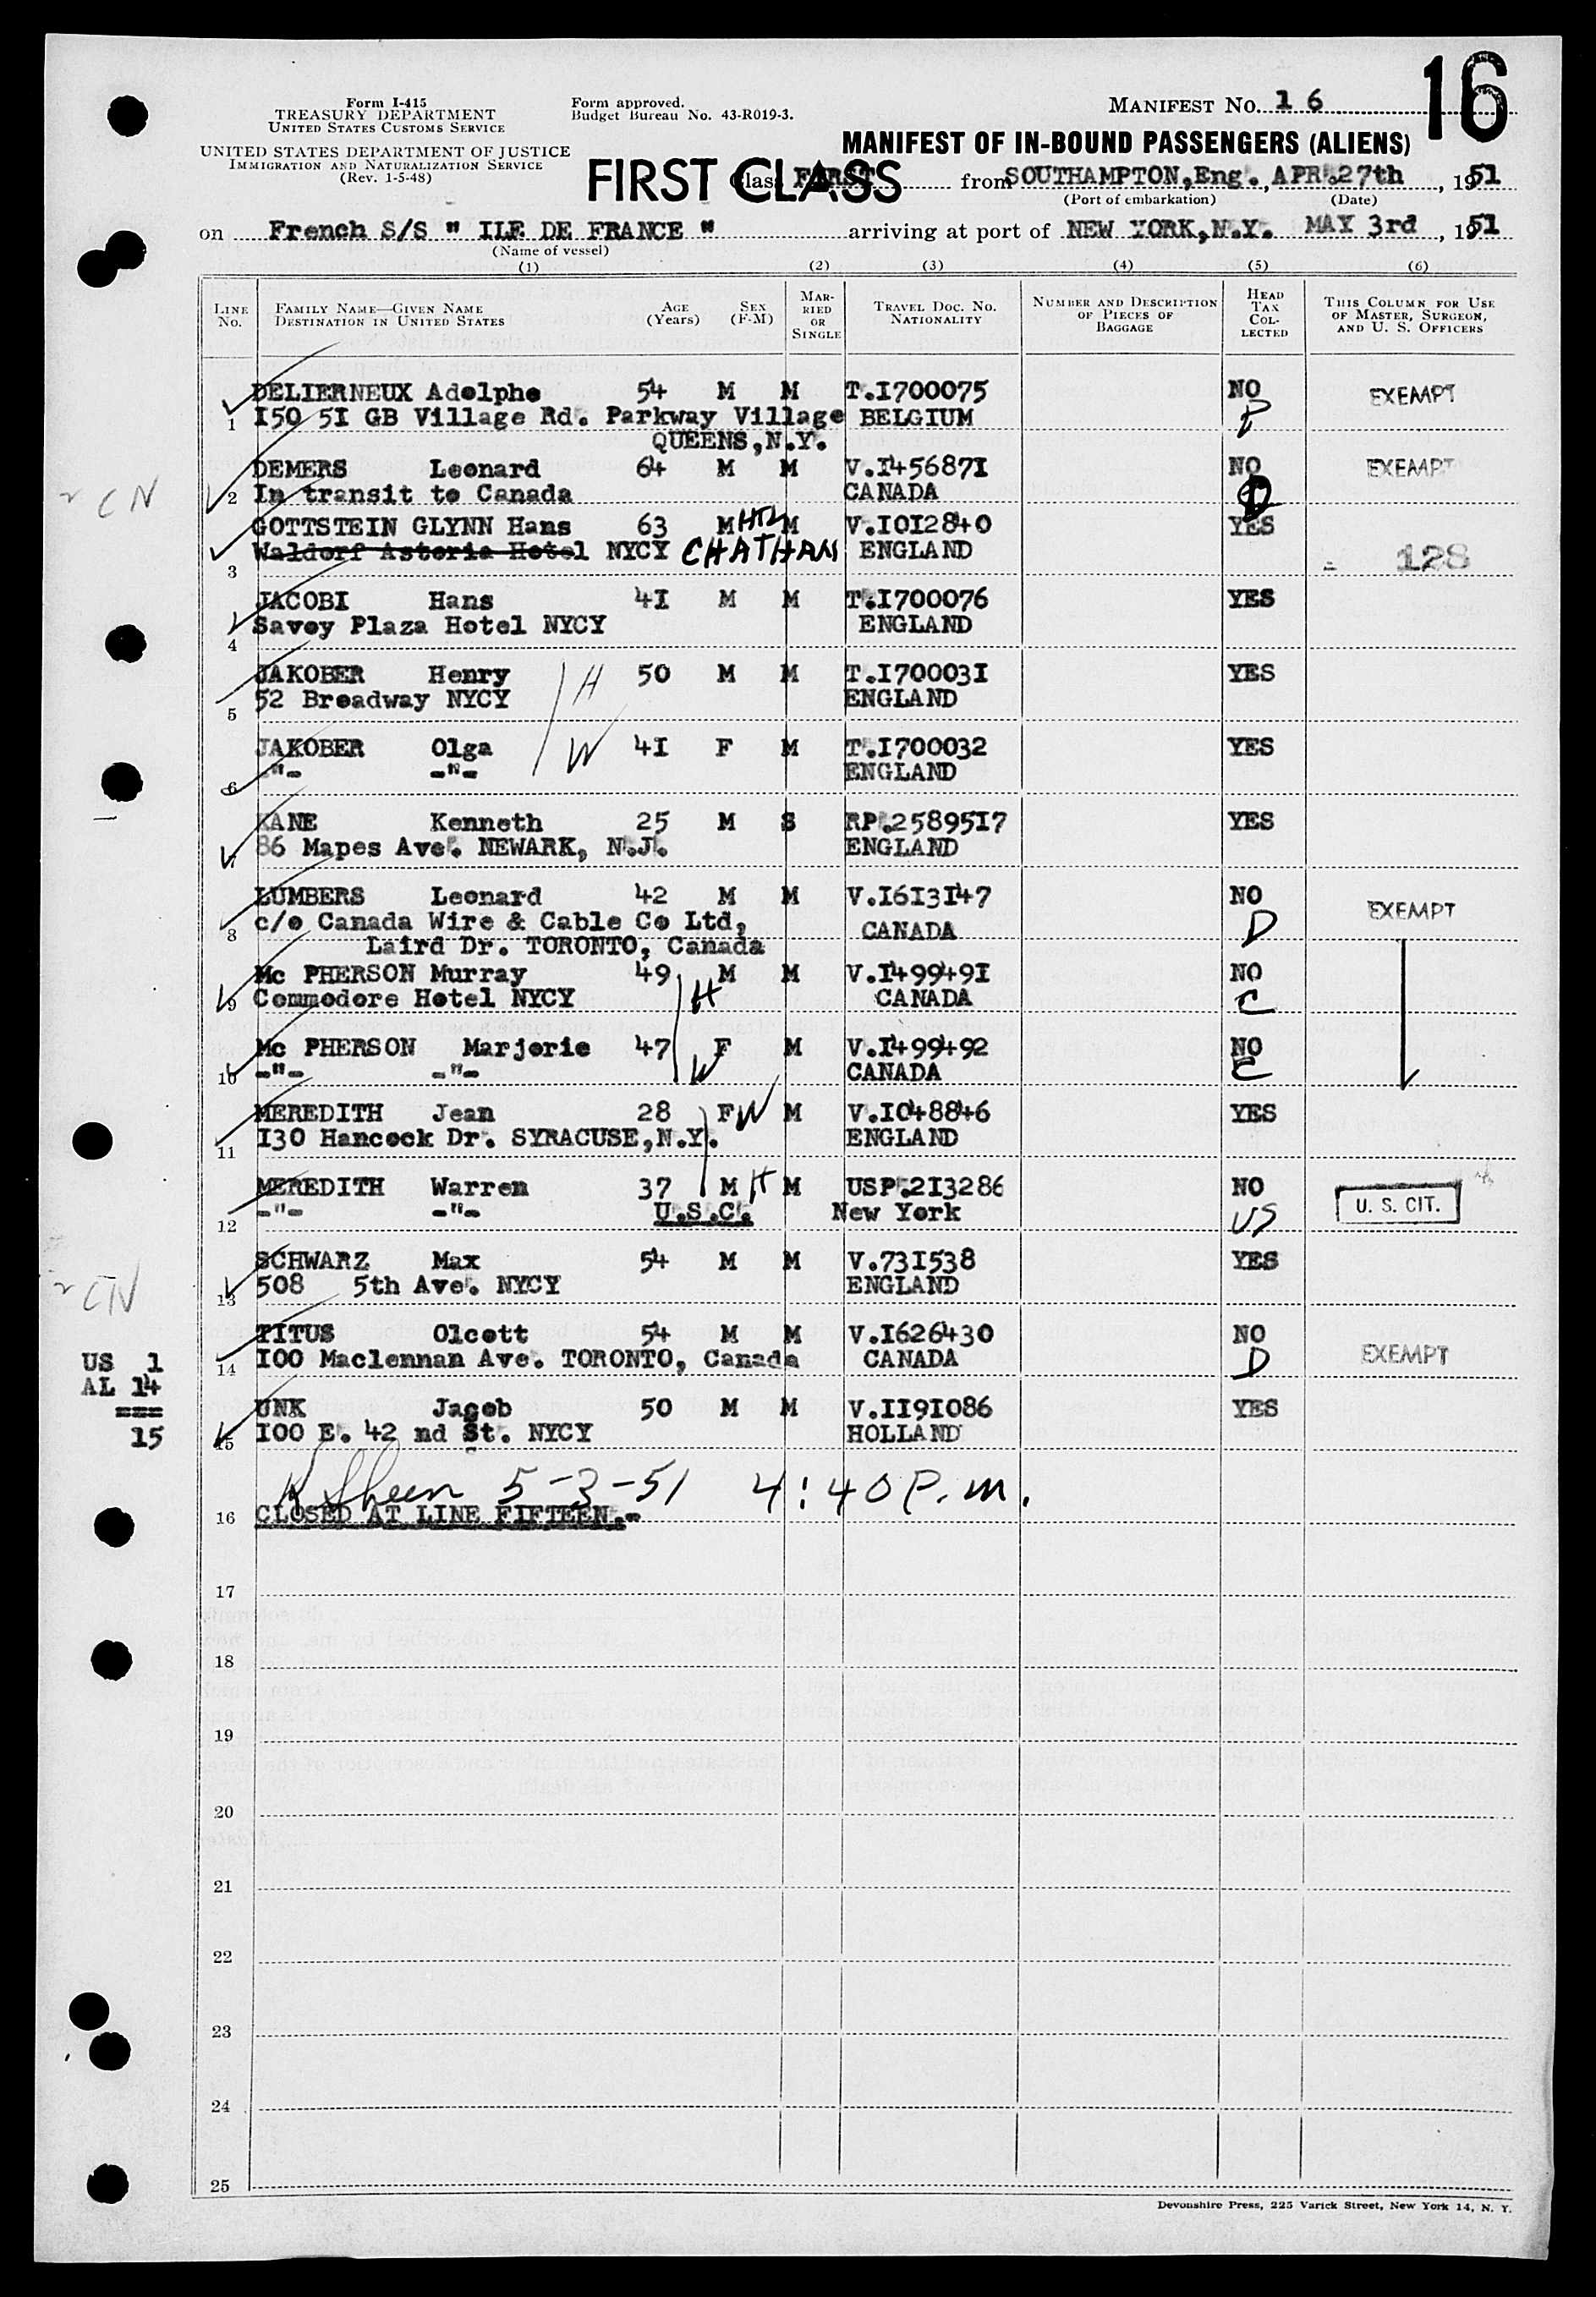 16
Form I-415
TREASURY DEPARTMENT
UNITED STATES CUSTOMS SERVICE
UNITED STATES DEPARTMENT OF JUSTICE
IMMIGRATION AND NATURALIZATION SERVICE
(Rev. 1-5-48)
Form approved.
Budget Bureau No. 43-R019-3.
MANIFEST NO. 16
MANIFEST OF IN-BOUND PASSENGERS (ALIENS)
FIRST CLASS
Class FIRST from SOUTHAMPTON, Eng., APR. 27th, 1951
(Port of embarkation) (Date)
on French S/S " ILE DE FRANCE " arriving at port of NEW YORK, N.Y. MAY 3rd, 1951
(Name of vessel)
(1) (2) (3) (4) (5) (6)
LINE NO. FAMILY NAME—GIVEN NAME DESTINATION IN UNITED STATES AGE (Years) SEX (F-M) MARRIED OR SINGLE TRAVEL DOC. NO. NATIONALITY NUMBER AND DESCRIPTION OF PIECES OF BAGGAGE HEAD TAX COLLECTED THIS COLUMN FOR USE OF MASTER, SURGEON, AND U. S. OFFICERS
DELIERNEUX Adolphe 54 M M T.I700075 NO EXEMPT
1 I50 5I GB Village Rd. Parkway Village BELGIUM
QUEENS, N.Y.
DEMERS Leonard 64 M M V.I45687I NO EXEMPT
CN 2 In transit to Canada CANADA D
GOTTSTEIN GLYNN Hans 63 M HTL M V.I0I2840 YES
Waldorf Astoria Hotel NYCY CHATHAM ENGLAND 128
3
JACOBI Hans 4I M M T.I700076 YES
Savoy Plaza Hotel NYCY ENGLAND
4
JAKOBER Henry H 50 M M T.I70003I YES
52 Broadway NYCY ENGLAND
5
JAKOBER Olga W 4I F M T.I700032 YES
-"- -"- ENGLAND
6
KANE Kenneth 25 M S RP.25895I7 YES
86 Mapes Ave. NEWARK, N.J. ENGLAND
LUMBERS Leonard 42 M M V.I6I3I47 NO EXEMPT
8 c/o Canada Wire & Cable Co Ltd, CANADA D
Laird Dr. TORONTO, Canada
Mc PHERSON Murray 49 M M V.I49949I NO
9 Commodore Hotel NYCY H CANADA C
Mc PHERSON Marjorie 47 F M V.I499492 NO
10 -"- -"- W CANADA C
MEREDITH Jean 28 F W M V.I048846 YES
I30 Hancock Dr. SYRACUSE, N.Y. ENGLAND
11
MEREDITH Warren 37 M H M USP.2I3286 NO U. S. CIT.
12 -"- -"- U.S.C. New York US
SCHWARZ Max 54 M M V.73I538 YES
CN 13 508 5th Ave. NYCY ENGLAND
TITUS Olcott 54 M M V.I626430 NO
14 I00 Maclennan Ave. TORONTO, Canada CANADA D EXEMPT
US 1
AL 14
===
15
UNK Jacob 50 M M V.II9I086 YES
15 I00 E. 42 nd St. NYCY HOLLAND
K Sheen 5-3-51 4:40 P.m.
16 CLOSED AT LINE FIFTEEN.-
17
18
19
20
21
22
23
24
25
Devonshire Press, 225 Varick Street, New York 14, N. Y.